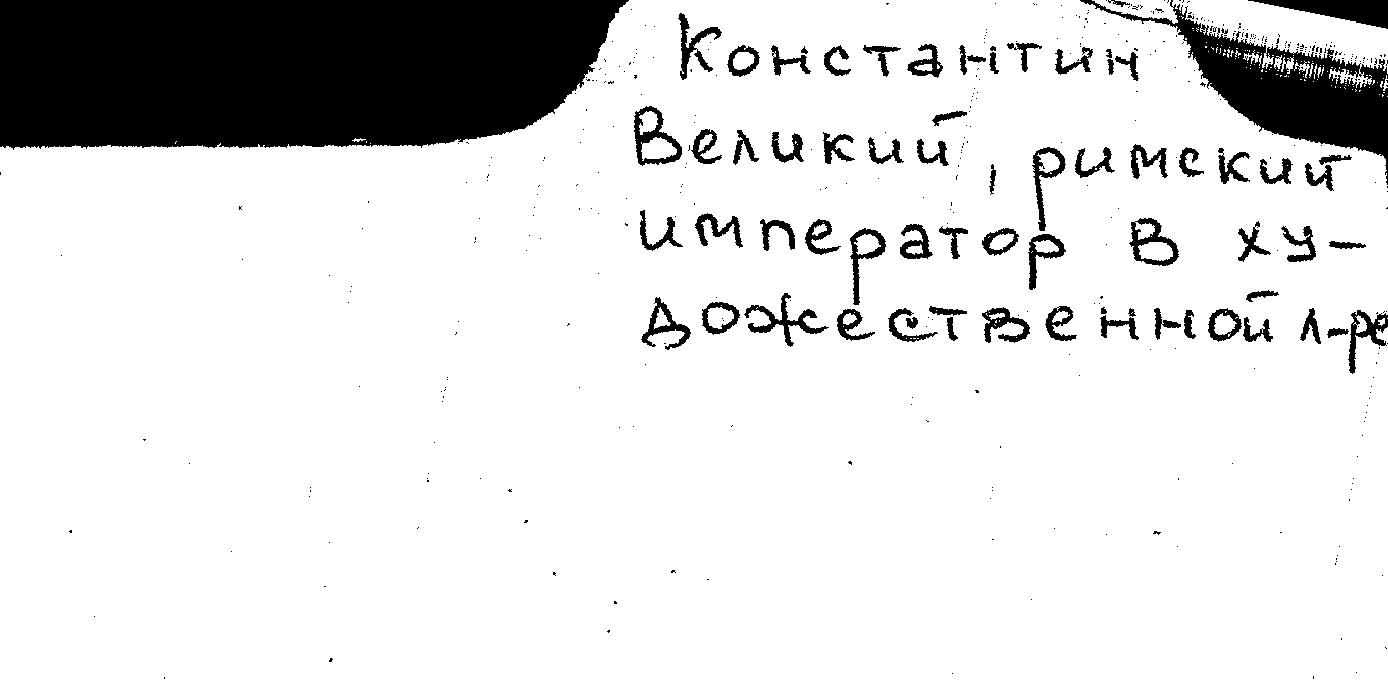 Константин
Великий, римский
император в ху-
дожественной л-ре